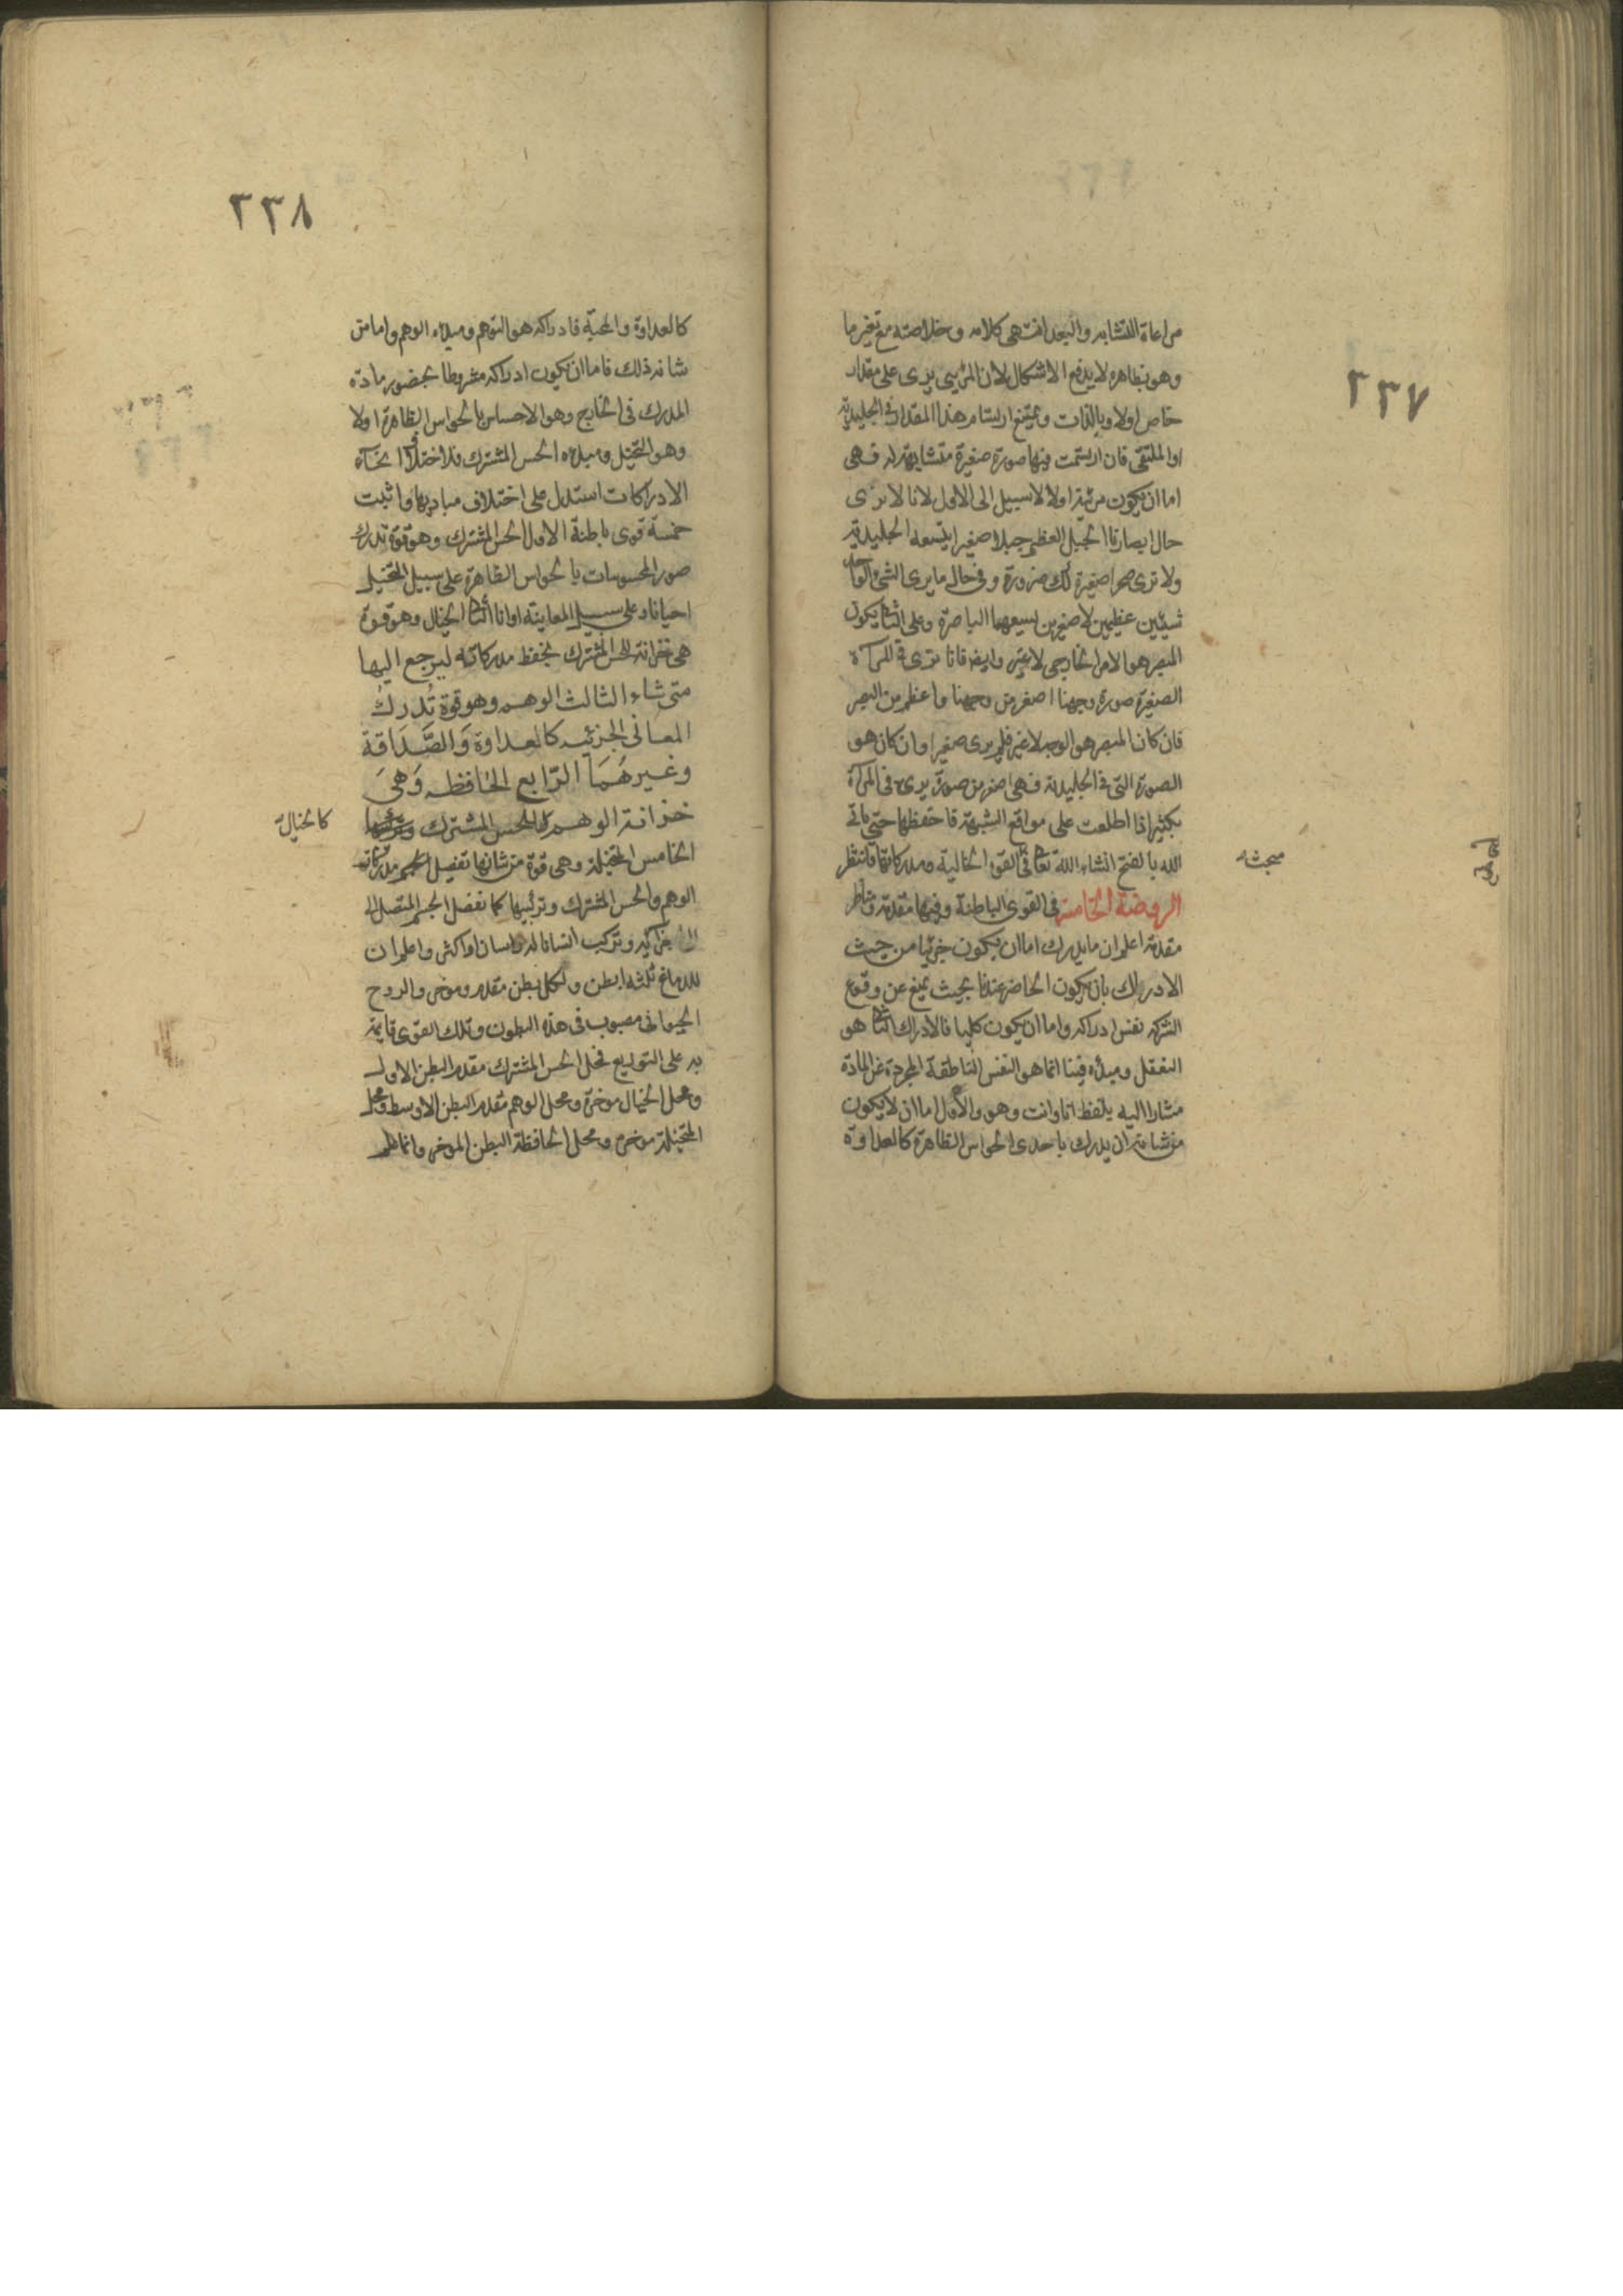 ٢٣٧
مراعاة التشابه والبعد انتهى كلامه وخلاصته مع تغير ما
وهو بظاهره لا يدفع الاشكال لان المرئي يرى على مقدار
خاص اولا وبالذات ويمتنع ارتسام هذا المقدار في الجليدية
او الملتقى فان ارتسمت فيها صورة صغيرة متشابهة له فهى
اما ان يكون مرئية اولا لا سبيل الى الاول لانا لا نرى
حال ابصارنا الجبل العظيم جبلا صغيرا يتسعه الجليدية
ولا نرى صغيرة لك ضرورة وفى حال ما يرى الشئ الواحد
شيئين عظيمين لا صغيرين يسيعهما الباصرة وعلى الثانى يكون
المبصر هو الامر الخارجى لا غير وايضا فانا نرى فى المرآة
الصغيرة صورة وجهنا اصغر من وجهنا واعظم من البصر
فان كان المبصر هو الوجه لا غير فلم يرى صغيرا وان كان هو
الصورة التى فى الجليدية فهى اصغر من صورة يرى فى المرآة
بكثير اذا اطلعت على مواقع الشبهة فاحفظها حتى ياتى
الله بالفتح انشاء الله تعا فى القوة الخيالية ومدركاتها فانتظر
مبحثه
الروضة الخامسة فى القوى الباطنة وفيها مقدمة
مقدمة اعلم ان ما يدرك اما ان يكون جزئيا من حيث
الادراك بان يكون الحاضر عندنا بحيث يمنع عن وقوع
الشركة نفس ادراكه واما ان يكون كليا فالادراك الثانى هو
التعقل ومبدئه فينا انما هو النفس الناطقة المجردة عن المادة
مشارا اليه بلفظ انا وانت وهو والاول اما ان لا يكون
من شانه ان يدرك باحدى الحواس الظاهرة كالعداوة
٢٣٨
كالعداوة والمحبة فادراكه هو التوهم ومبدئه الوهم واما من
شانه ذلك فاما ان يكون ادراكه مشروطا بحضور مادة
المدرك فى الخارج وهو الاحساس بالحواس الظاهرة اولا
وهو التخيل ومبدئه الحس المشترك فلاختلاف انحآء
الادراكات استدل على اختلاف مباديها واثبت
خمسة قوى باطنة الاول الحس المشترك وهو قوة تدرك
صور المحسوسات بالحواس الظاهرة على سبيل التخيل
احيانا وعلى سبيل المعاينة اوانا الثانى الخيال وهو قوة
هى خزانة للحس المشترك يحفظ مدركاته ليرجع اليها
متى شاء الثالث الوهم وهو قوة تُدرك
المعانى الجزئيه كالعداوة وَالصَّدَاقة
وغيرهُمَا الرّابع الحَافظه وَهىَ
خزانة الوهم كالحس المشترك
كالخيال
الخامس المتخيلة وهى قوة من شانها تفصيل مدركات
الوهم والحس المشترك وتركيبها كما تفصل الجسم المتصل الى
اجزائه وتركب انسانا له راسان او اكثر واعلم ان
للدماغ ثلثه ابطن ولكل بطن مقدم وموخر والروح
الحيوانى مصبوب فى هذه البطون وتلك القوى قايمة
به على التوزيع فمحل الحس المشترك مقدم البطن الاول
ومحل الخيال موخره ومحل الوهم مقدم البطن الاوسط ومحل
المتخيلة موخره ومحل الحافظة البطن الموخر وانما